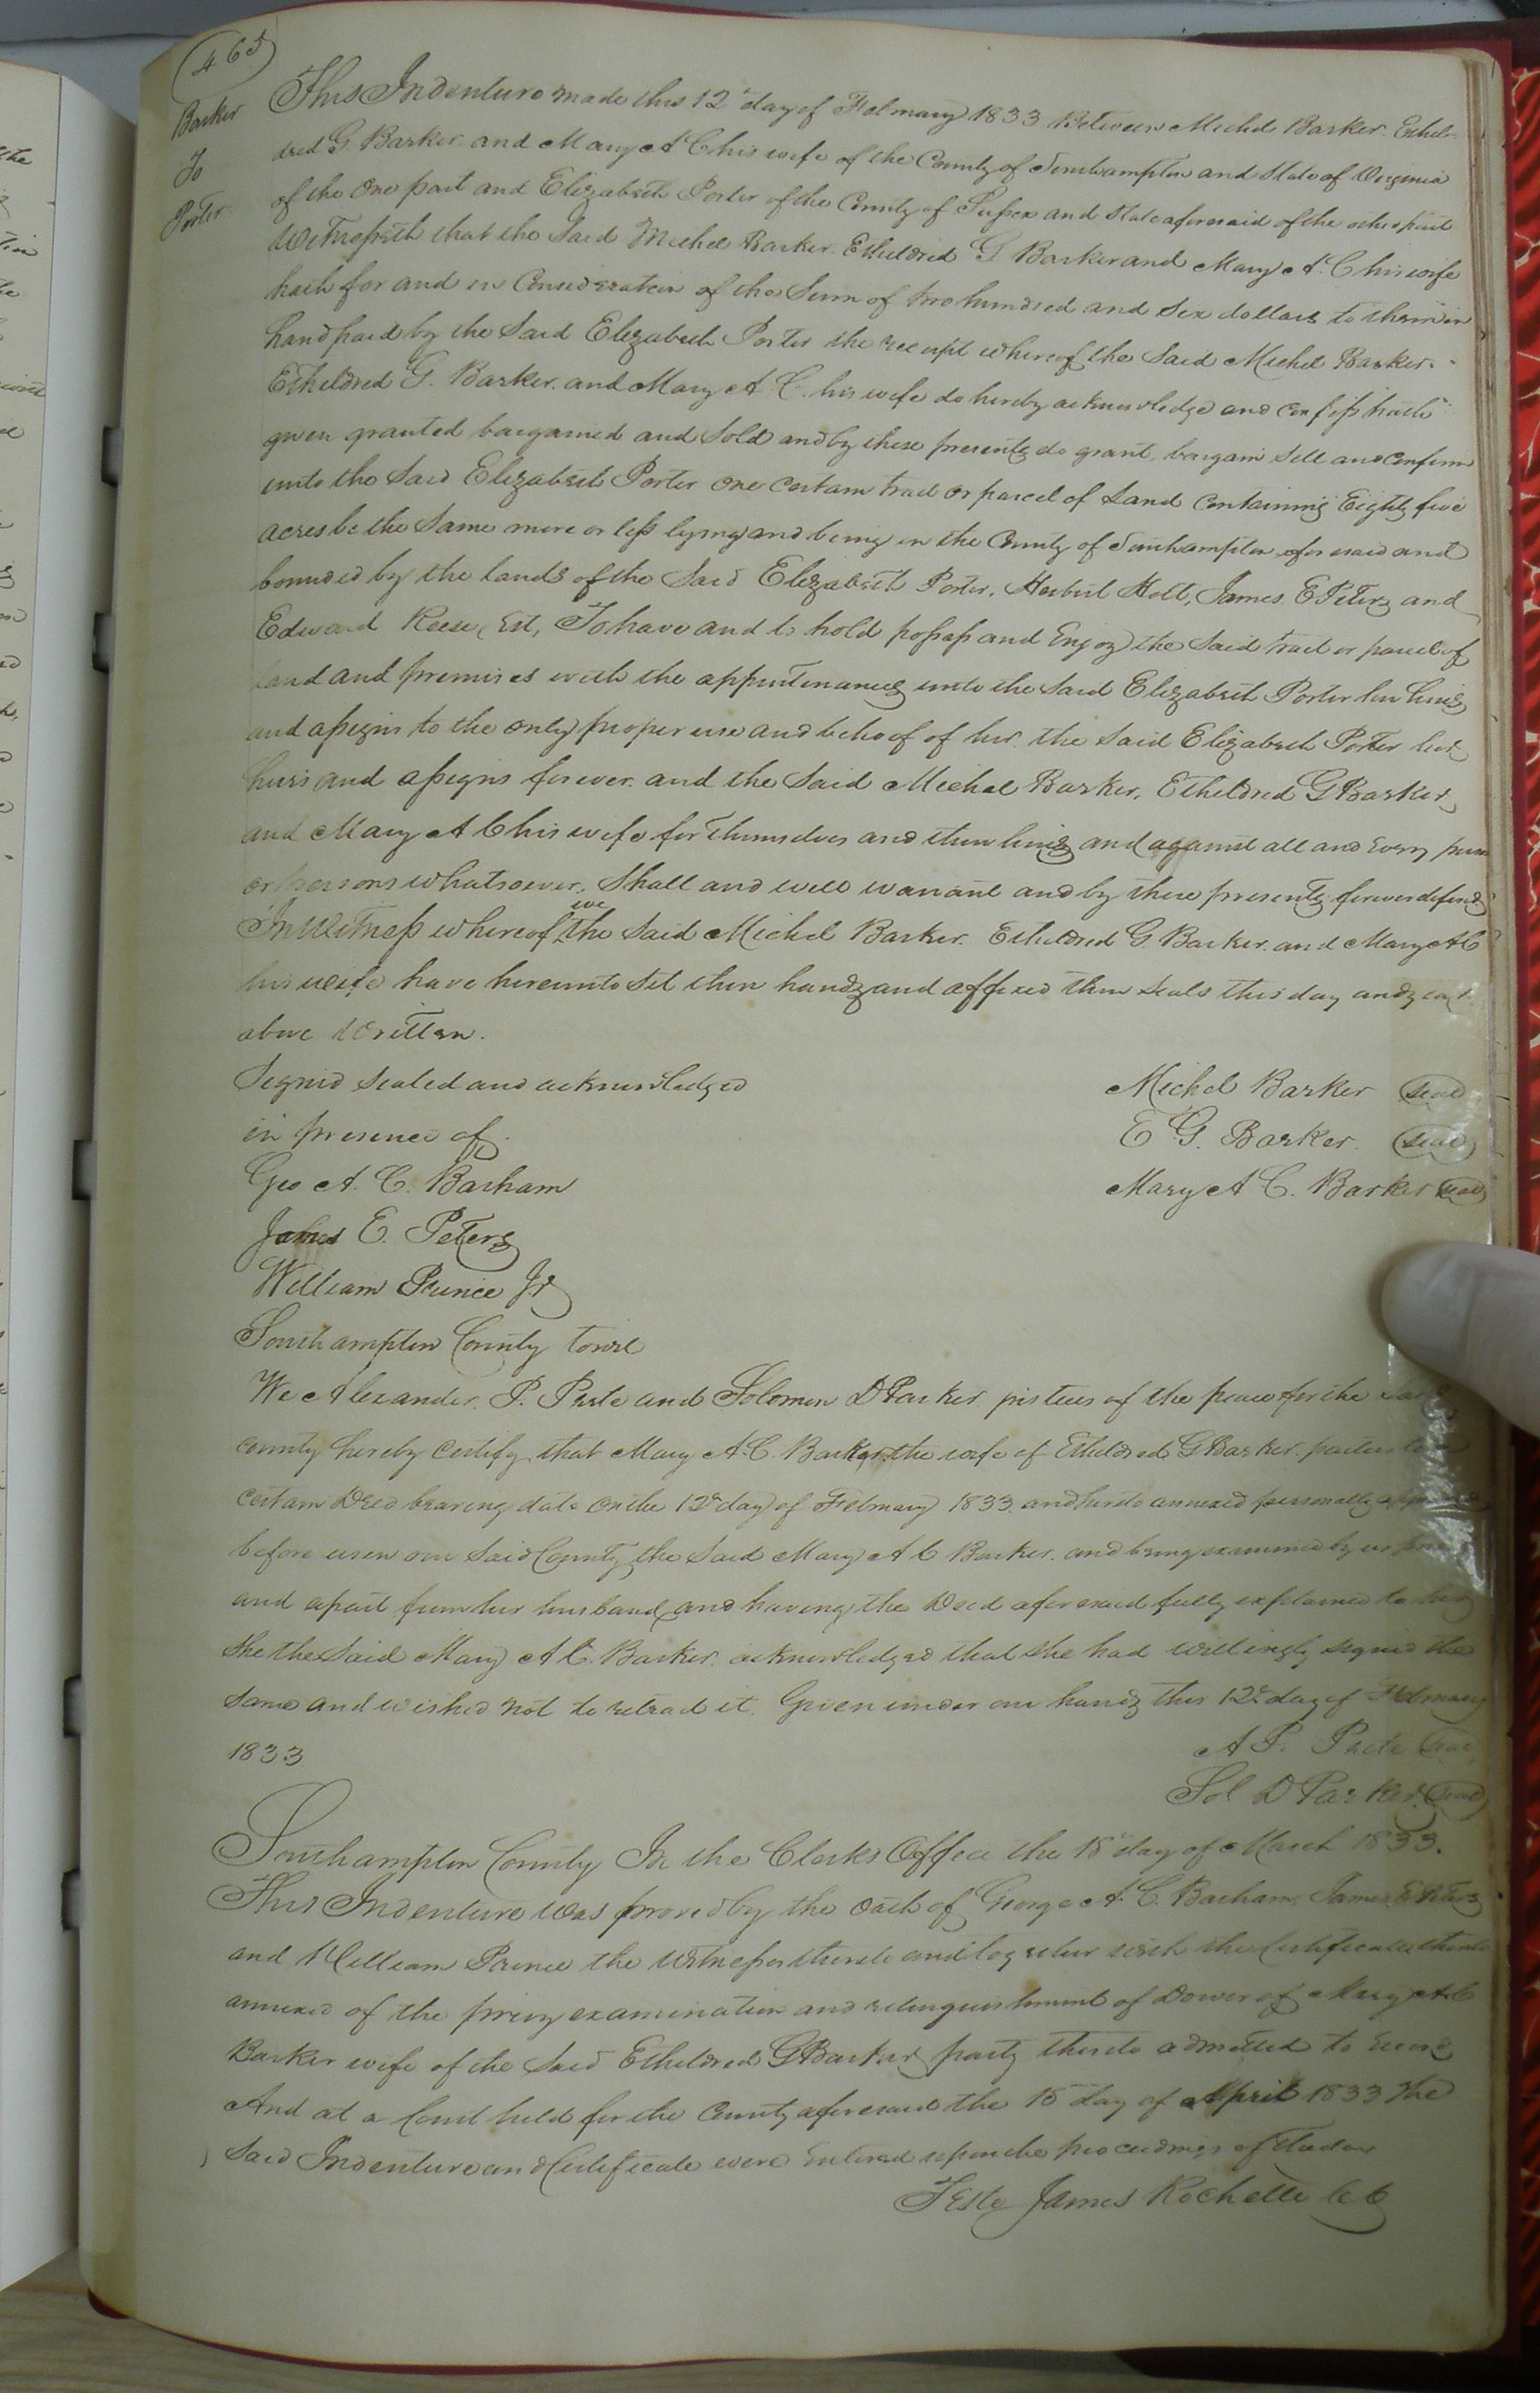 465
Barker
To
Porter
This Indenture made this 12th day of February 1833 Between Michel Barker. Ethel-
dred G Barker. and Mary A C his wife of the County of Southampton and State of Virginia
of the one part and Elizabeth Porter of the County of Sussex and State aforesaid of the other part
Witnesseth that the Said Michel Barker. Etheldred G Barker and Mary A. C his wife
hath for and in Consideration of the Sum of two hundred and Six dollars to them in
hand paid by the Said Elizabeth Porter the receipt whereof the Said Michel Barker.
Etheldred G. Barker. and Mary A. C. his wife do hereby acknowledge and confess hath
given granted bargained and Sold and by these presents do grant, bargain Sell and confirm
unto the Said Elizabeth Porter one certain tract or parcel of Land Containing Eighty five
acres be the Same more or less lying and being in the County of Southampton aforesaid and
bounded by the lands of the Said Elizabeth Porter, Herbert Holt, James E Peters and
Edward Reese, Est, To have and to hold possess and Enjoy the Said tract or parcel of
land and premises with the appurtenances unto the Said Elizabeth Porter her heirs
and assigns to the only proper use and behoof of her the Said Elizabeth Porter her
heirs and assigns forever. and the Said Michel Barker, Etheldred G Barker
and Mary A C his wife for Themselves and their heirs and against all and Every person
or persons whatsoever. Shall and will warrant and by these presents forever defend
In Witness whereof we the Said Michel Barker. Etheldred G. Barker. and Mary A C
his wife have hereunto Set their hands and affixed their Seals this day and year
above Written.
Signed Sealed and acknowledged
in presence of.
Geo A. C. Barham
James E. Peters
William Prince Jr
Michel Barker seal
E G. Barker. seal
Mary A C. Barker seal
Southampton County towit
We Alexander. P. Peete and Solomon D Parker justices of the peace for the said
county hereby certify that Mary A. C. Barker the wife of Etheldred G Barker. parties to a
certain Deed bearing date on the 12th day of February 1833. and hereto annexed personally appeared
before us in our Said County the Said Mary A C Barker. and being examined by us
and apart from her husband and having the Deed aforesaid fully explained to her
She the Said Mary A C. Barker. acknowledged that She had willingly Signed the
Same and wished not to retract it. Given under our hands this 12th day of February
1833
A P. Peete seal
Sol D Parker seal
Southampton County In the Clerks Office the 18th day of March 1833.
This Indenture was proved by the oath of George A. C. Barham, James E Peters
and William Prince the Witnesses thereto and together with the Certificate thereto
annexed of the privy examination and relinquishment of Dower of Mary A C
Barker wife of the Said Etheldred G Barker party thereto admitted to record
And at a Court held for the County aforesaid the 15th day of April 1833 The
Said Indenture and Certificate were Entered upon the proceedings of the day
Teste James Rochelle C C